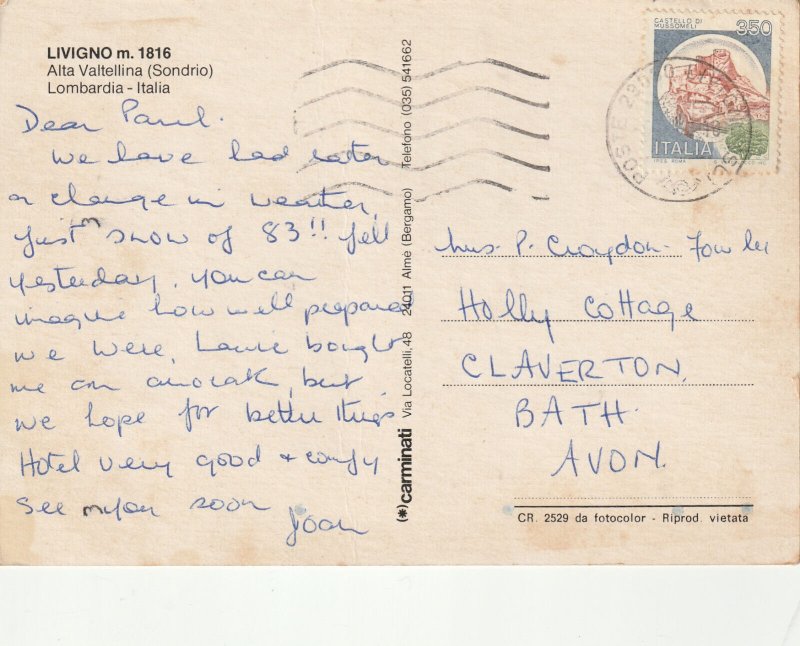 LIVIGNO m. 1816
Alta Valtellina (Sondrio)
Lombardia - Italia
Dear Paul.
We have had rather
a change in weather,
first snow of 83!! fell
yesterday, you can
imagine how well prepared
we were, Laurie bought
me an anorak, but
we hope for better things
Hotel very good & comfy
See you soon
Joan
(*) carminati Via Locatelli, 48 24011 Almè (Bergamo) Telefono (035) 541662
CASTELLO DI
MUSSOMELI
350
ITALIA
POSTE
Mrs. P. Croydon-Fowler
Holly Cottage
CLAVERTON,
BATH.
AVON.
CR. 2529 da fotocolor - Riprod. vietata